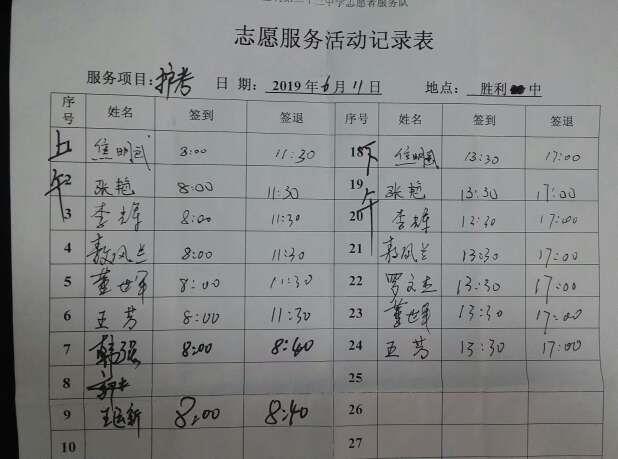 中学志愿者服务队
志愿服务活动记录表
服务项目:护考 日 期: 2019 年 6 月 11 日 地点: 胜利 中
序号 姓名 签到 签退 序号 姓名 签到 签退
上 1 焦明武 8:00 11:30 18 下 焦明武 13:30 17:00
午 2 张艳 8:00 11:30 19 午 张艳 13:30 17:00
3 李 8:00 11:30 20 李 13:30 17:00
4 郭凤兰 8:00 11:30 21 郭凤兰 13:30 17:00
5 董世军 8:00 11:30 22 罗文杰 13:30 17:00
6 王芳 8:00 11:30 23 董世军 13:30 17:00
7 韩强 8:00 8:40 24 王芳 13:30 17:00
8 25
9 王 新 8:00 8:40 26
10 27